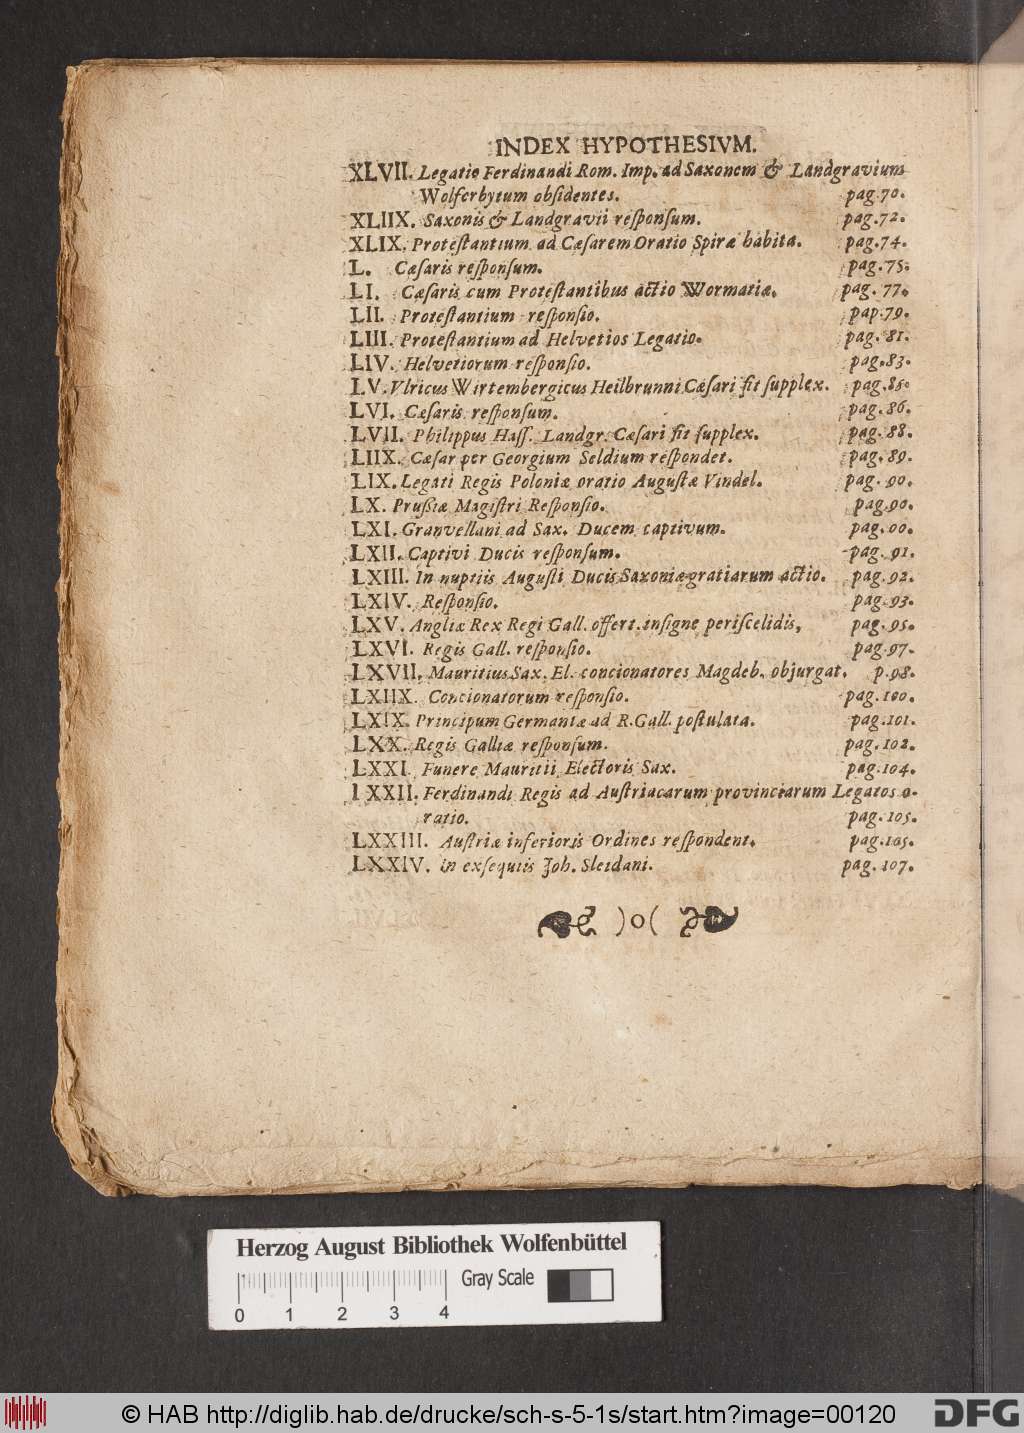 INDEX HYPOTHESIVM.
XLVII. Legatio Ferdinandi Rom. Imp. ad Saxonem & Landgravium
Wolferbytum obsidentes. pag. 70.
XLIIX. Saxonis & Landgravii responsum. pag. 72.
XLIX. Protestantium ad Cæsarem Oratio Spiræ habita. pag. 74.
L. Cæsaris responsum. pag. 75.
LI. Cæsaris cum Protestantibus actio Wormatiæ. pag. 77.
LII. Protestantium responsio. pap. 79.
LIII. Protestantium ad Helvetios Legatio. pag. 81.
LIV. Helvetiorum responsio. pag. 83.
LV. Vlricus Wirtembergicus Heilbrunni Cæsari fit supplex. pag. 85.
LVI. Cæsaris responsum. pag. 86.
LVII. Philippus Hass. Landgr. Cæsari fit supplex. pag. 88.
LIIX. Cæsar per Georgium Seldium respondet. pag. 89.
LIX. Legati Regis Poloniæ oratio Augustæ Vindel. pag. 90.
LX. Prussiæ Magistri Responsio. pag. 90.
LXI. Granvellani ad Sax. Ducem captivum. pag. 00.
LXII. Captivi Ducis responsum. pag. 91.
LXIII. In nuptiis Augusti Ducis Saxoniæ gratiarum actio. pag. 92.
LXIV. Responsio. pag. 93.
LXV. Angliæ Rex Regi Gall. offert insigne periscelidis, pag. 95.
LXVI. Regis Gall. responsio. pag. 97.
LXVII. Mauritius Sax. El. concionatores Magdeb. objurgat. p. 98.
LXIIX. Concionatorum responsio. pag. 100.
LXIX. Principum Germaniæ ad R. Gall. postulata. pag. 101.
LXX. Regis Galliæ responsum. pag. 102.
LXXI. Funere Mauritii Electoris Sax. pag. 104.
LXXII. Ferdinandi Regis ad Austriacarum provinciarum Legatos o-
ratio. pag. 105.
LXXIII. Austriæ inferioris Ordines respondent. pag. 105.
LXXIV. in exsequiis Joh. Sleidani. pag. 107.
)o(
Herzog August Bibliothek Wolfenbüttel
Gray Scale
0 1 2 3 4
© HAB http://diglib.hab.de/drucke/sch-s-5-1s/start.htm?image=00120
DFG